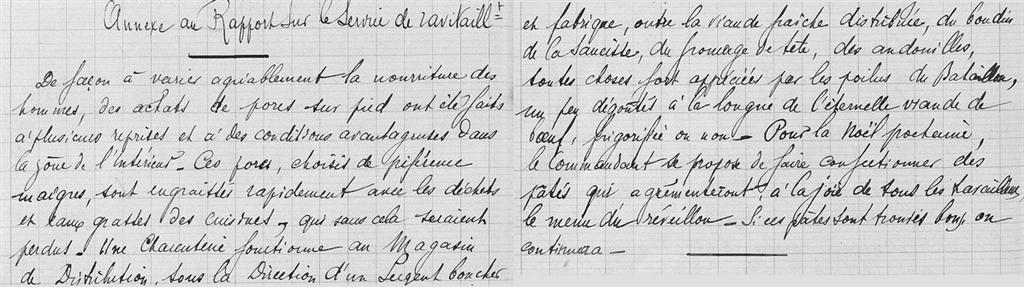 Annexe au Rapport sur le Service de ravitaillt
De façon à varier agréablement la nourriture des
hommes, des achats de porcs sur pied ont été faits
à plusieurs reprises et à des conditions avantageuses dans
la zône de l'intérieur - Ces porcs, choisis de préférence
maigres, sont engraissés rapidement avec les déchets
et eaux grasses des cuisines, qui sans cela seraient
perdus - Une Charcuterie fonctionne au Magasin
de Distribution, sous la Direction d'un Sergent boucher
et fabrique, outre la viande fraîche distribuée, du boudin
de la saucisse, du fromage de tête, des andouilles,
toutes choses fort appréciées par les poilus du Bataillon,
un peu dégoûtés à la longue de l'éternelle viande de
bœuf, frigorifiée ou non - Pour la Noël prochaine,
le Commandant se propose de faire confectionner des
pâtés qui agrémenteront, à la joie de tous les travailleurs,
le menu du réveillon - Si ces pâtés sont trouvés bons, on
continuera -